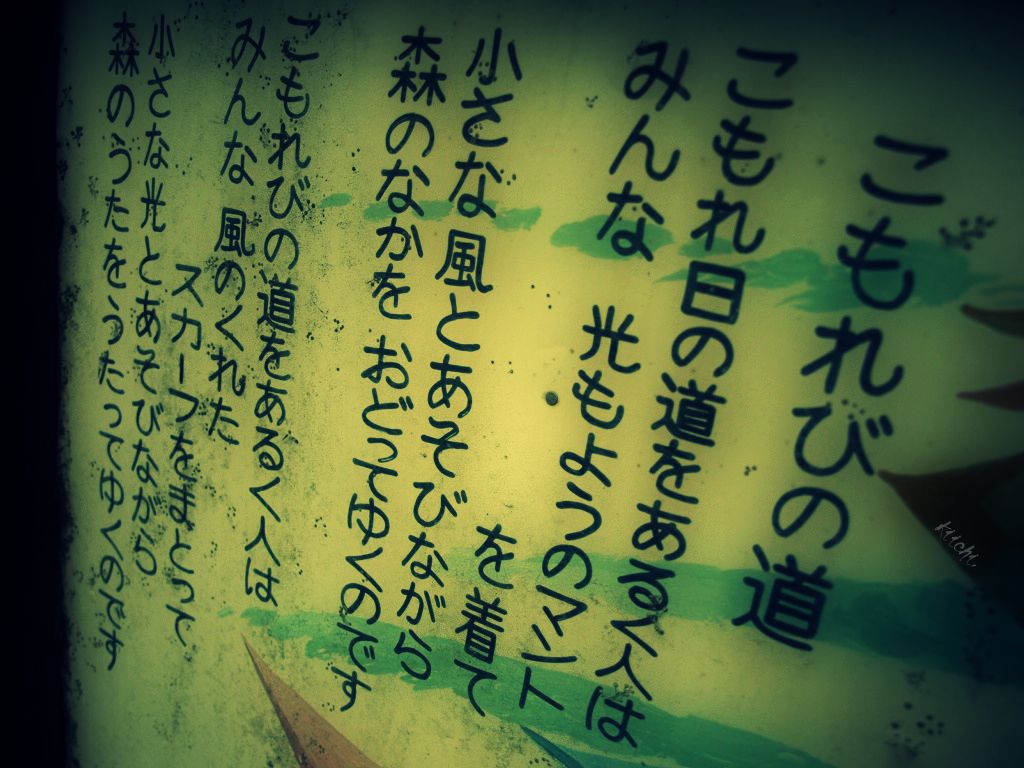 こもれびの道
こもれ日の道をあるく人は
みんな 光もようのマント
を着て
小さな風とあそびながら
森のなかを おどってゆくのです
こもれびの道をあるく人は
みんな 風のくれた
スカーフをまとって
小さな光とあそびながら
森のうたをうたってゆくのです
kiichi